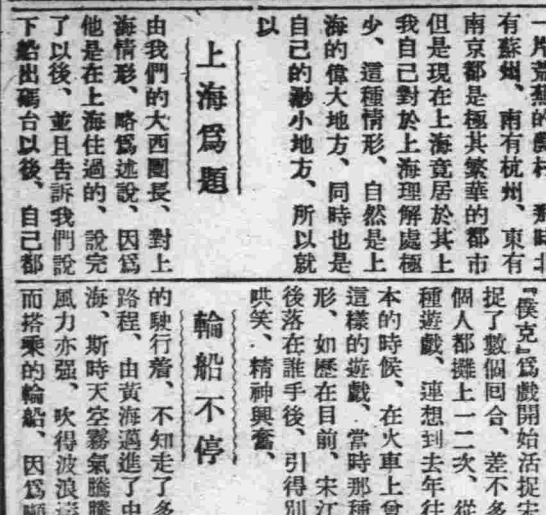 一片荒蕪的農村、那時北
有蘇州、南有杭州、東有
南京都是極其繁華的都市
但是現在上海竟居於其上
我自己對於上海理解處極
少、這種情形、自然是上
海的偉大地方、同時也是
自己的渺小地方、所以就
以
上海爲題
由我們的大西團長、對上
海情形、略爲述說、因爲
他是在上海住過的、說完
了以後、並且告訴我們說
下船出碼台以後、自己都
『僕克』爲戲開始活捉宋
捉了數個回合、差不多
個人都攤上一二次、從
種遊戲、連想到去年往
本的時候、在火車上曾
這樣的遊戲、當時那種
形、如歷在目前、宋江
後落在誰手後、引得別
哄笑、精神興奮、
輪船不停
的駛行着、不知走了多
路程、由黃海邁進了中
海、斯時天空霧氣騰騰
風力亦强、吹得波浪
而搭乘的輪船、因爲順